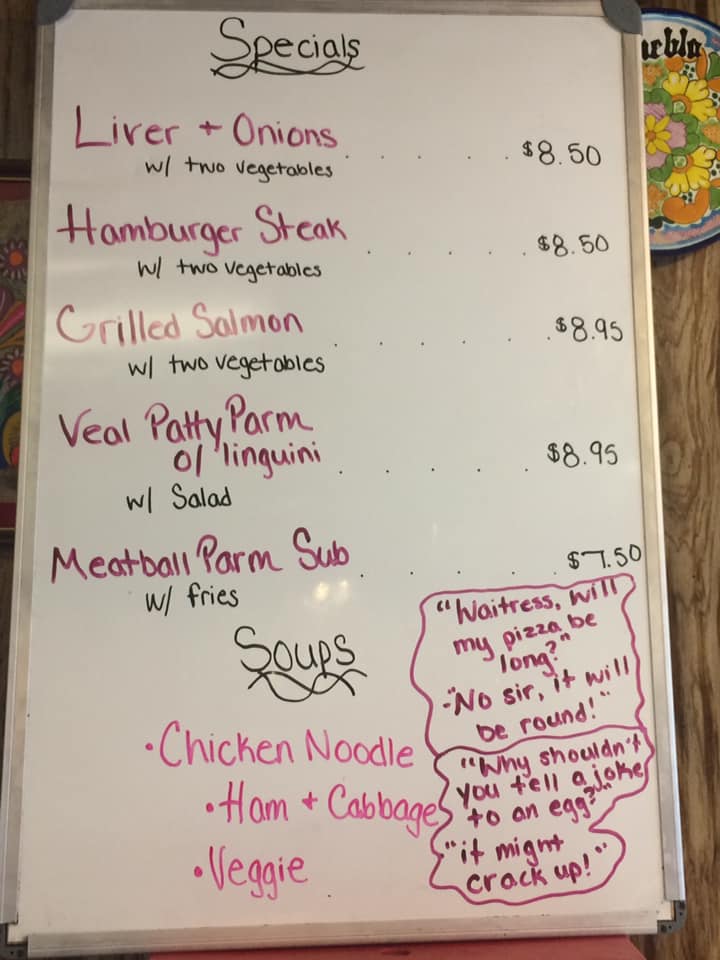 Specials
Liver + Onions
w/ two vegetables . . . . . $8.50
Hamburger Steak
w/ two vegetables . . . . . $8.50
Grilled Salmon
w/ two vegetables . . . . . . $8.95
Veal Patty Parm
o/ linguini . . . . . $8.95
w/ Salad
Meatball Parm Sub . . . . . $7.50
w/ fries
Soups
• Chicken Noodle
• Ham + Cabbage
• Veggie
"Waitress, will
my pizza be
long?"
-"No sir, it will
be round!"
"Why shouldn't
you tell a joke
to an egg?"
"it might
crack up!"